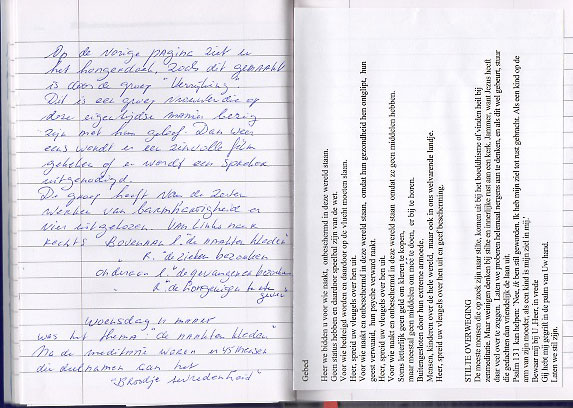 Op de vorige pagina ziet u
het hongerdoek, zoals dit gemaakt
is door de groep "Verrijking".
Dit is een groep vrouwen die op
deze eigentijdse manier bezig
zijn met hun geloof. Dan weer
eens wordt er een zinvolle film
gekeken of er wordt een spreker
uitgenodigd.
De groep heeft van de zeven
werken van barmhartigheid er
vier uitgekozen. Van links naar
rechts Bovenaan L "de naakten kleden"
R. "de zieken bezoeken
onderaan L "de gevangenen bezoeken
R "de hongerigen te eten
geven"
Woensdag 11 maart
was het thema "de naakten kleden"
Na de meditatie waren
die deelnamen aan het
"Broodje
Gebed
Heer wij bidden u voor wie naakt, onbeschermd in deze wereld staan.
Geen status hebben en daardoor speelbal zijn van de wet.
Voor wie bedreigd worden en daardoor op de vlucht moeten slaan.
Heer, spreid uw vleugels over hen uit.
Voor wie naakt en onbeschermd in deze wereld staan, omdat hun gezondheid hen ontglipt, hun
geest verwaait, hun psyche verward raakt.
Heer, spreid uw vleugels over hen uit.
Voor wie naakt en onbeschermd in deze wereld staan omdat ze geen middelen hebben.
Soms letterlijk geen geld om kleren te kopen,
maar meestal geen middelen om mee te doen, er bij te horen.
Buitengesloten door hun extreme armoede.
Mensen, kinderen over de hele wereld, maar ook in ons welvarende landje.
Heer, spreid uw vleugels over hen uit en geef bescherming.
STILTE OVERWEGING
De meeste mensen die op zoek zijn naar stilte, komen uit bij het boeddhisme of vinden heil bij
zenmeditatie. Maar weinigen denken bij stilte en innerlijke rust aan een kerk. Jammer, want Jezus heeft
daar veel over te zeggen. Laten we proberen helemaal nergens aan te denken, en als dit wel gebeurt, stuur
die gedachten dan vriendelijk de laan uit.
Psalm 131 kan helpen: 'Nee, ik ben stil geworden. Ik heb mijn ziel tot rust gebracht. Als een kind op de
arm van zijn moeder, als een kind is mijn ziel in mij.'
Bewaar mij bij U Heer, in vrede
Gij hebt mij gegrift in de palm van Uw hand.
Laten we stil zijn.